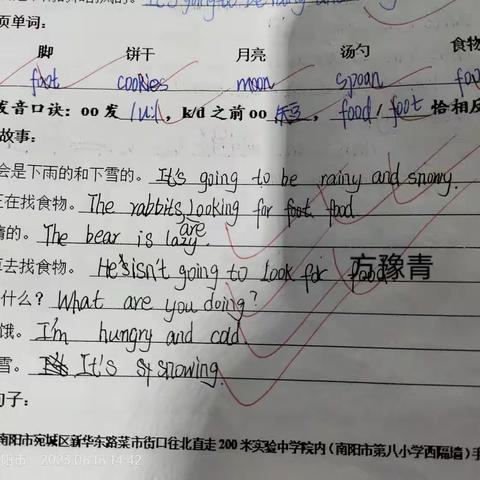 It's going to be rainy and
页单词：
脚 饼干 月亮 汤勺 食物
foot cookies moon spoon foo
发音口诀：oo 发 /u:/，k/d 之前 oo 短，food / foot 恰相反
故事：
会是下雨的和下雪的。It's going to be rainy and snowy.
正在找食物。The rabbits are looking for food.
惰的。The bear is lazy.
算去找食物。He isn't going to look for food
方豫青
什么？What are you doing?
饿。I'm hungry and cold
雪。It's snowing.
句子：
南阳市宛城区新华东路菜市街口往北直走 200 米实验中学院内（南阳市第八小学西隔墙）手
阳市 2023.06.16 14:42